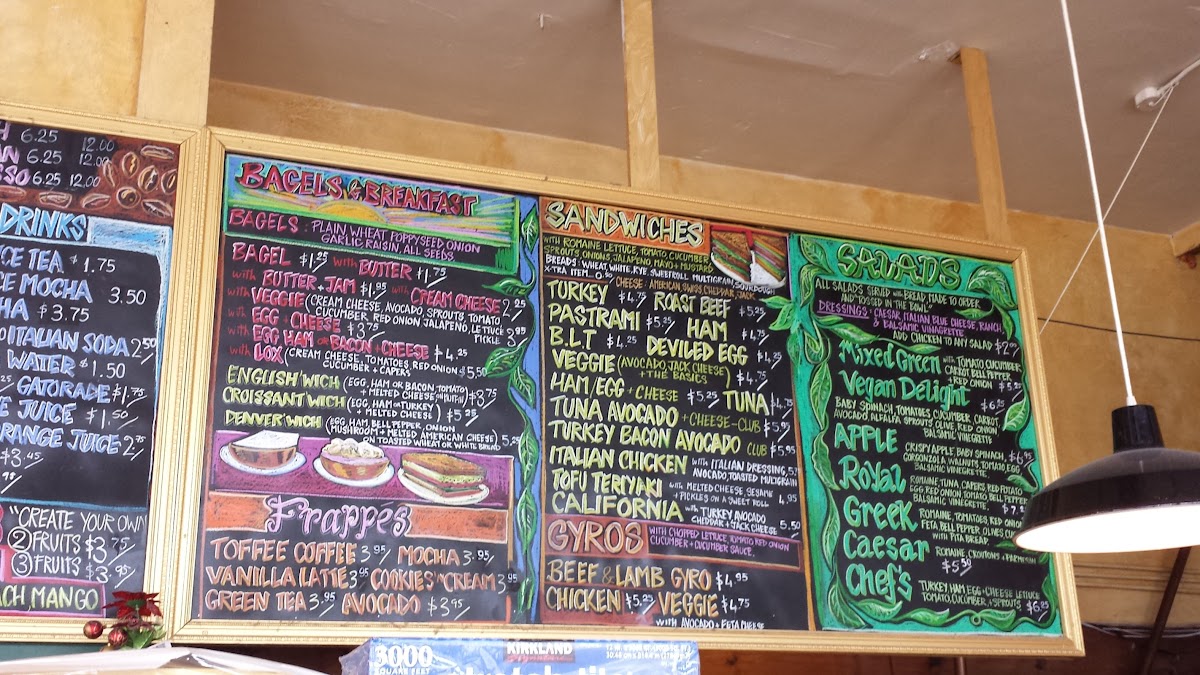 H 6.25 12.00
AN 6.25 12.00
SSO 6.25 12.00
DRINKS
ICE TEA $1.75
CE MOCHA 3.50
HA $3.75
ITALIAN SODA 2.50
WATER $1.50
GATORADE $1.75
E JUICE $1.50
RANGE JUICE 2.75
$3.45
"CREATE YOUR OWN
2 FRUITS $3.75
3 FRUITS $3.95
ACH, MANGO
BAGELS & BREAKFAST
BAGELS: PLAIN WHEAT POPPYSEED ONION
GARLIC RAISIN, ALL SEEDS
BAGEL $1.25 with BUTTER $1.75
with BUTTER, JAM $1.95 with CREAM CHEESE 2.25
with VEGGIE (CREAM CHEESE, AVOCADO, SPROUTS, TOMATO
CUCUMBER, RED ONION JALAPENO, LETTUCE
PICKLE 3.95
with EGG + CHEESE $3.75
with EGG HAM OR BACON + CHEESE $4.25
with LOX (CREAM CHEESE, TOMATOES, RED ONION
CUCUMBER + CAPERS $5.50
ENGLISH'WICH (EGG, HAM OR BACON, TOMATO
+ MELTED CHEESE $3.75
CROISSANT'WICH (EGG, HAM OR TURKEY
+ MELTED CHEESE) $5.25
DENVER'WICH (EGG, HAM, BELL PEPPER, ONION
MUSHROOM + MELTED AMERICAN CHEESE)
ON TOASTED WHEAT OR WHITE BREAD 5.25
Frappes
TOFFEE COFFEE 3.95 MOCHA 3.95
VANILLA LATTE 3.95 COOKIES "N CREAM 3.95
GREEN TEA 3.95 AVOCADO $3.95
SANDWICHES
WITH ROMAINE LETTUCE, TOMATO, CUCUMBER
SPROUTS, ONIONS, JALAPENO, MAYO + MUSTARD
BREADS: WHEAT, WHITE, RYE, SWEETROLL MULTIGRAIN, SOURDOUGH
X-TRA ITEM_0.50 CHEESE: AMERICAN, SWISS, CHEDDAR, JACK
TURKEY $4.75 ROAST BEEF $5.25
PASTRAMI $5.25 HAM $4.75
B.L.T $4.25 DEVILED EGG $4.25
VEGGIE (AVOCADO, JACK CHEESE
+ THE BASICS) $4.75
HAM/EGG + CHEESE $5.25 TUNA $4.75
TUNA AVOCADO + CHEESE-CLUB $5.95
TURKEY BACON AVOCADO CLUB $5.95
ITALIAN CHICKEN with ITALIAN DRESSING,
AVOCADO, TOASTED MULTIGRAIN
TOFU TERIYAKI with MELTED CHEESE, SESAME
+ PICKLES ON A SWEET ROLL 4.95
CALIFORNIA with TURKEY AVOCADO
CHEDDAR + JACK CHEESE 5.50
GYROS WITH CHOPPED LETTUCE, TOMATO RED ONION
CUCUMBER + CUCUMBER SAUCE.
BEEF & LAMB GYRO $4.95
CHICKEN $5.25 VEGGIE $4.75
WITH AVOCADO + FETA CHEESE
SALADS
ALL SALADS SERVED with BREAD, MADE TO ORDER,
AND "TOSSED IN THE BOWL"
DRESSINGS: CAESAR, ITALIAN BLUE CHEESE, RANCH,
& BALSAMIC VINAGRETTE
ADD CHICKEN TO ANY SALAD $2.00
Mixed Green with TOMATO, CUCUMBER
CARROT, BELL PEPPER
+ RED ONION $5.25
Vegan Delight $6.25
BABY SPINACH, TOMATOES, CUCUMBER, CARROT,
AVOCADO, ALFALFA SPROUTS OLIVE, RED ONION,
BALSAMIC VINEGRETTE
APPLE CRISPY APPLE, BABY SPINACH,
GORGONZOLA WALNUTS, TOMATO, EGG
BALSAMIC VINEGRETTE. $6.95
Royal ROMAINE, TUNA, CAPERS, RED POTATO
EGG, RED ONION, TOMATO, BELL PEPPER
BALSAMIC VINEGRETTE,
Greek ROMAINE, TOMATOES, RED ONION
FETA, BELL PEPPER, OLIVES
WITH PITA BREAD.
Caesar ROMAINE, CROUTONS + PARMESAN
$5.50
Chef's TURKEY, HAM, EGG + CHEESE LETTUCE
TOMATO, CUCUMBER, + SPROUTS $6.25
3000
SQUARE FEET
KIRKLAND
Signature